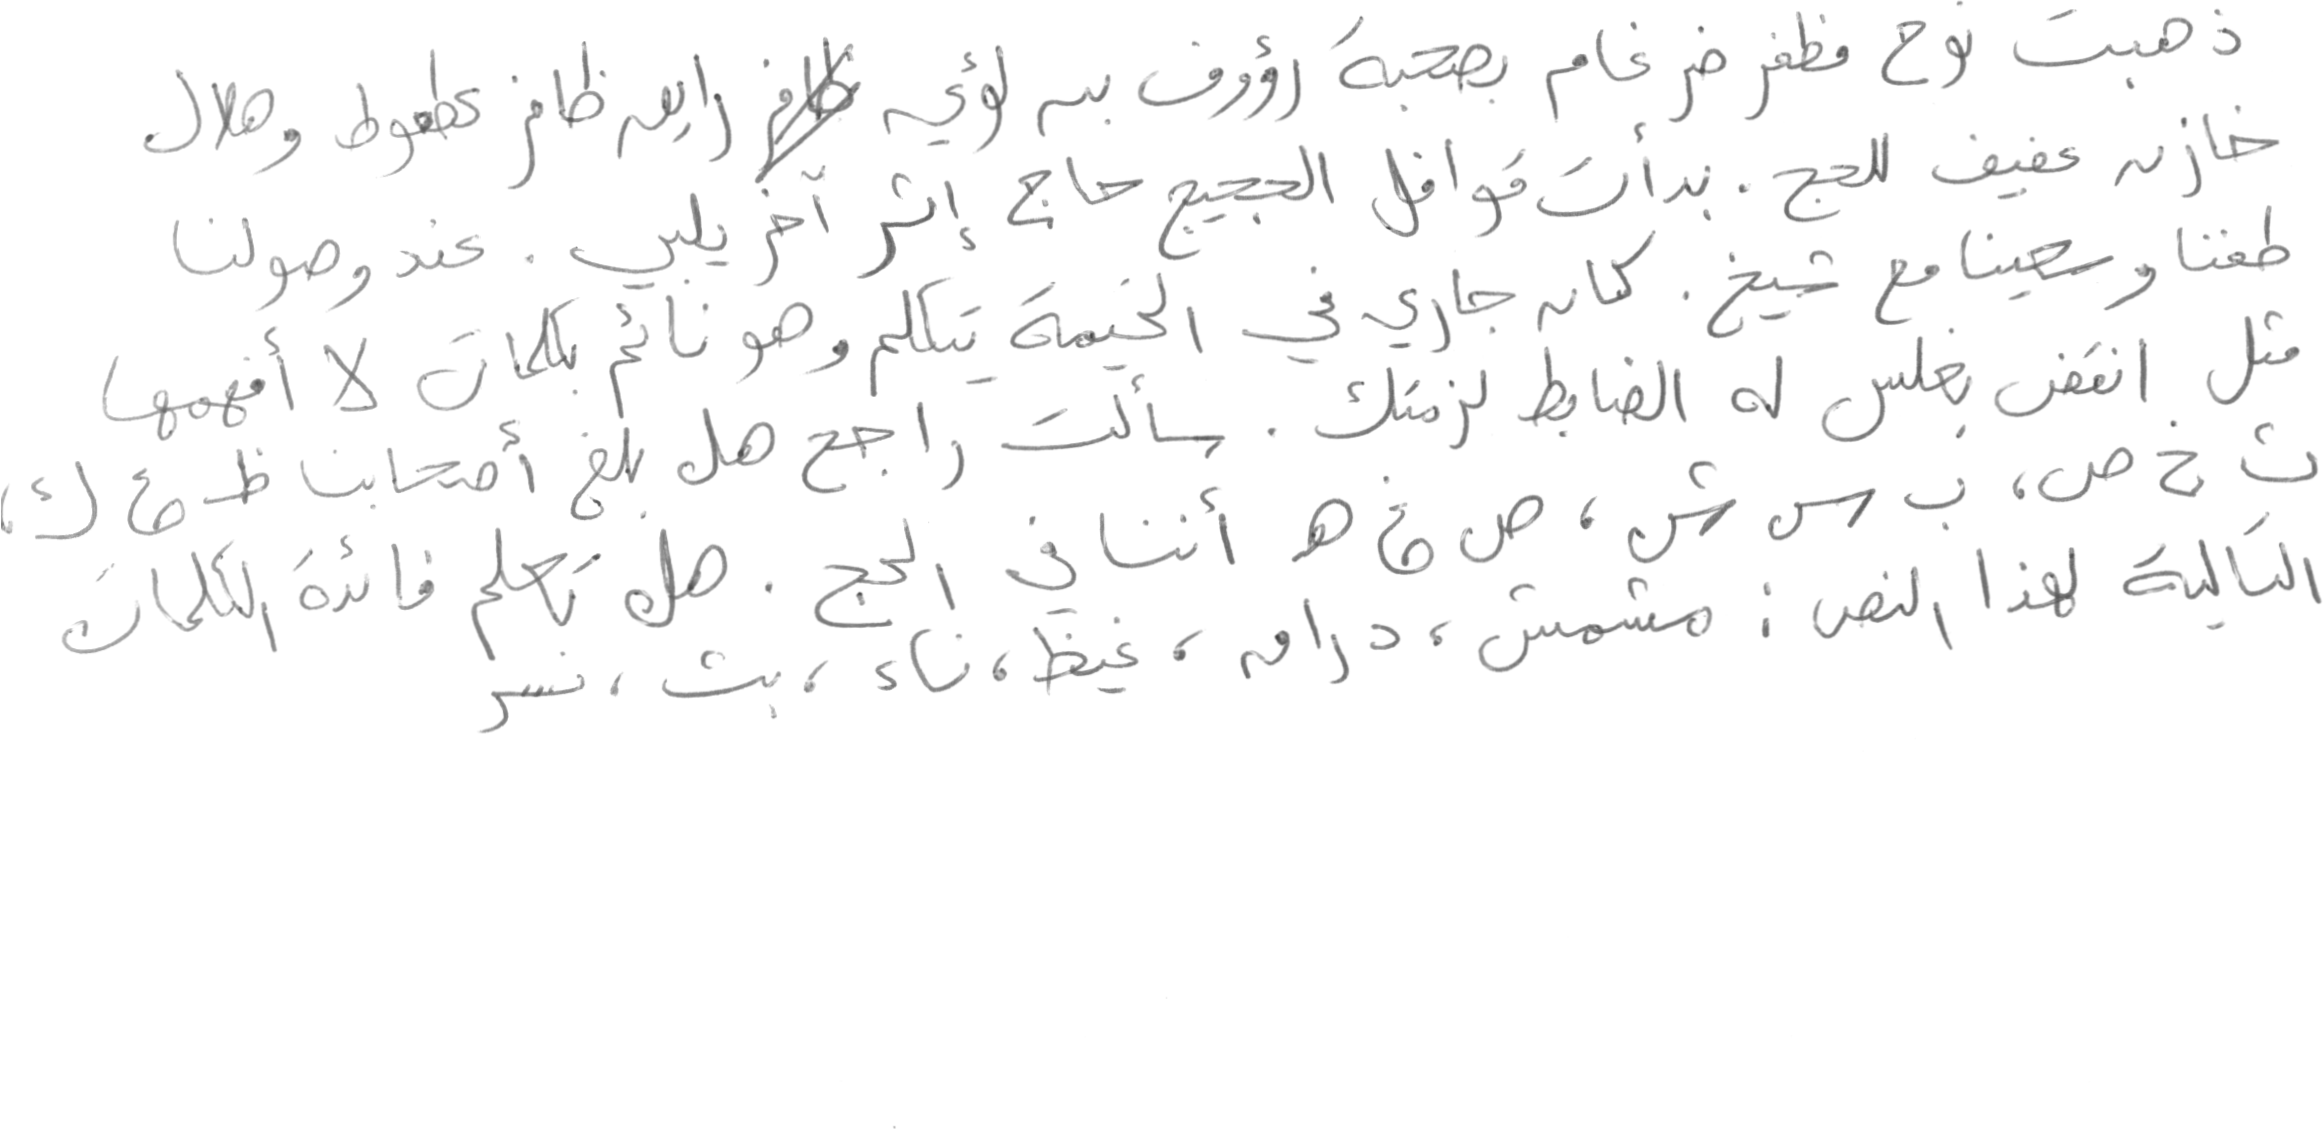 ذهبت نوح مظفر ضرغام بصحبة رؤوف بن لؤي رايق ظافر عطعوط وهلال
خازن عفيف للحج. بدأت قوافل الحجيج حاج إثر آخر يلبي. عند وصولنا
طفنا وسعينا مع شيخ. كان جاري في الخيمة يتكلم وهو نائم بكلمات لا أفهمها
مثل انقض بغلس له الضابط لزمتك. سألت راجح هل بلغ أصحابنا ظ ع ك،
ث خ ص، ب س ش، ص غ ه أننا في الحج. هل تعلم فائدة الكلمات
التالية لهذا النص: مشمش، دراق، غيظ، ناء، بث، نسر